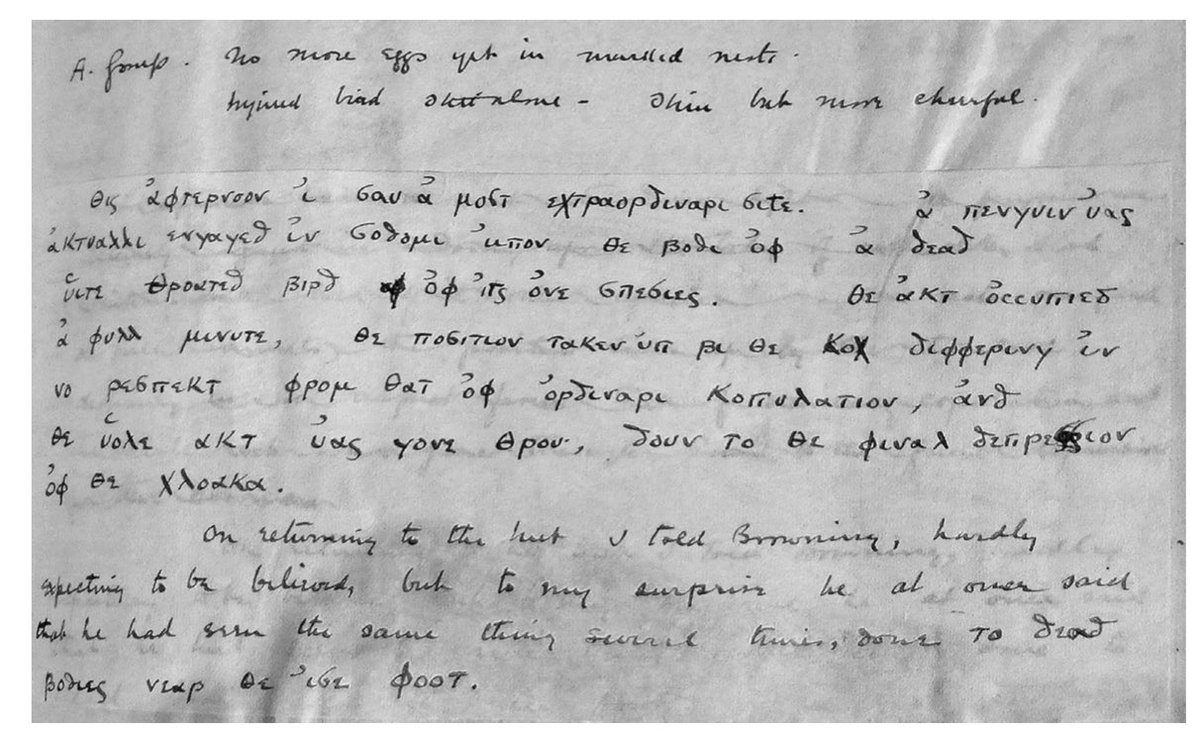 A. Group. No more eggs yet in marked nests.
Injured bird still alone – Thin but more cheerful.
θις ἀφτερνοον ἰ σαυ ἀ μοστ εχτραορδιναρι σιτε. ἀ πενγυιν ὑας
ἀκτυαλλι ενγαγεδ ἰν σοδομι ἰυπον θε βοδι ὀφ ἀ δεαδ
ὑιτε θροατεδ βιρδ ὀφ ἰτς ὀνε σπεσιες. θε ἀκτ ὀccυπιεδ
ἀ φυλλ μινυτε, θε ποσιτιον τακεν ὐπ βι θε κοχ διφφερινγ ἰν
νο ρεσπεκτ φρομ θατ ὀφ ὀρδιναρι Κοπυλατιον, ἀνδ
θε ὑολε ακτ ὑας γονε θρου, δουν το θε φιναλ δεπρεσσιον
ὀφ θε χλοακα.
On returning to the hut I told Browning, hardly
expecting to be believed, but to my surprise he at once said
that he had seen the same thing several times, δονε το δεαδ
βοδιες νεαρ θε ἰσε φοοτ.